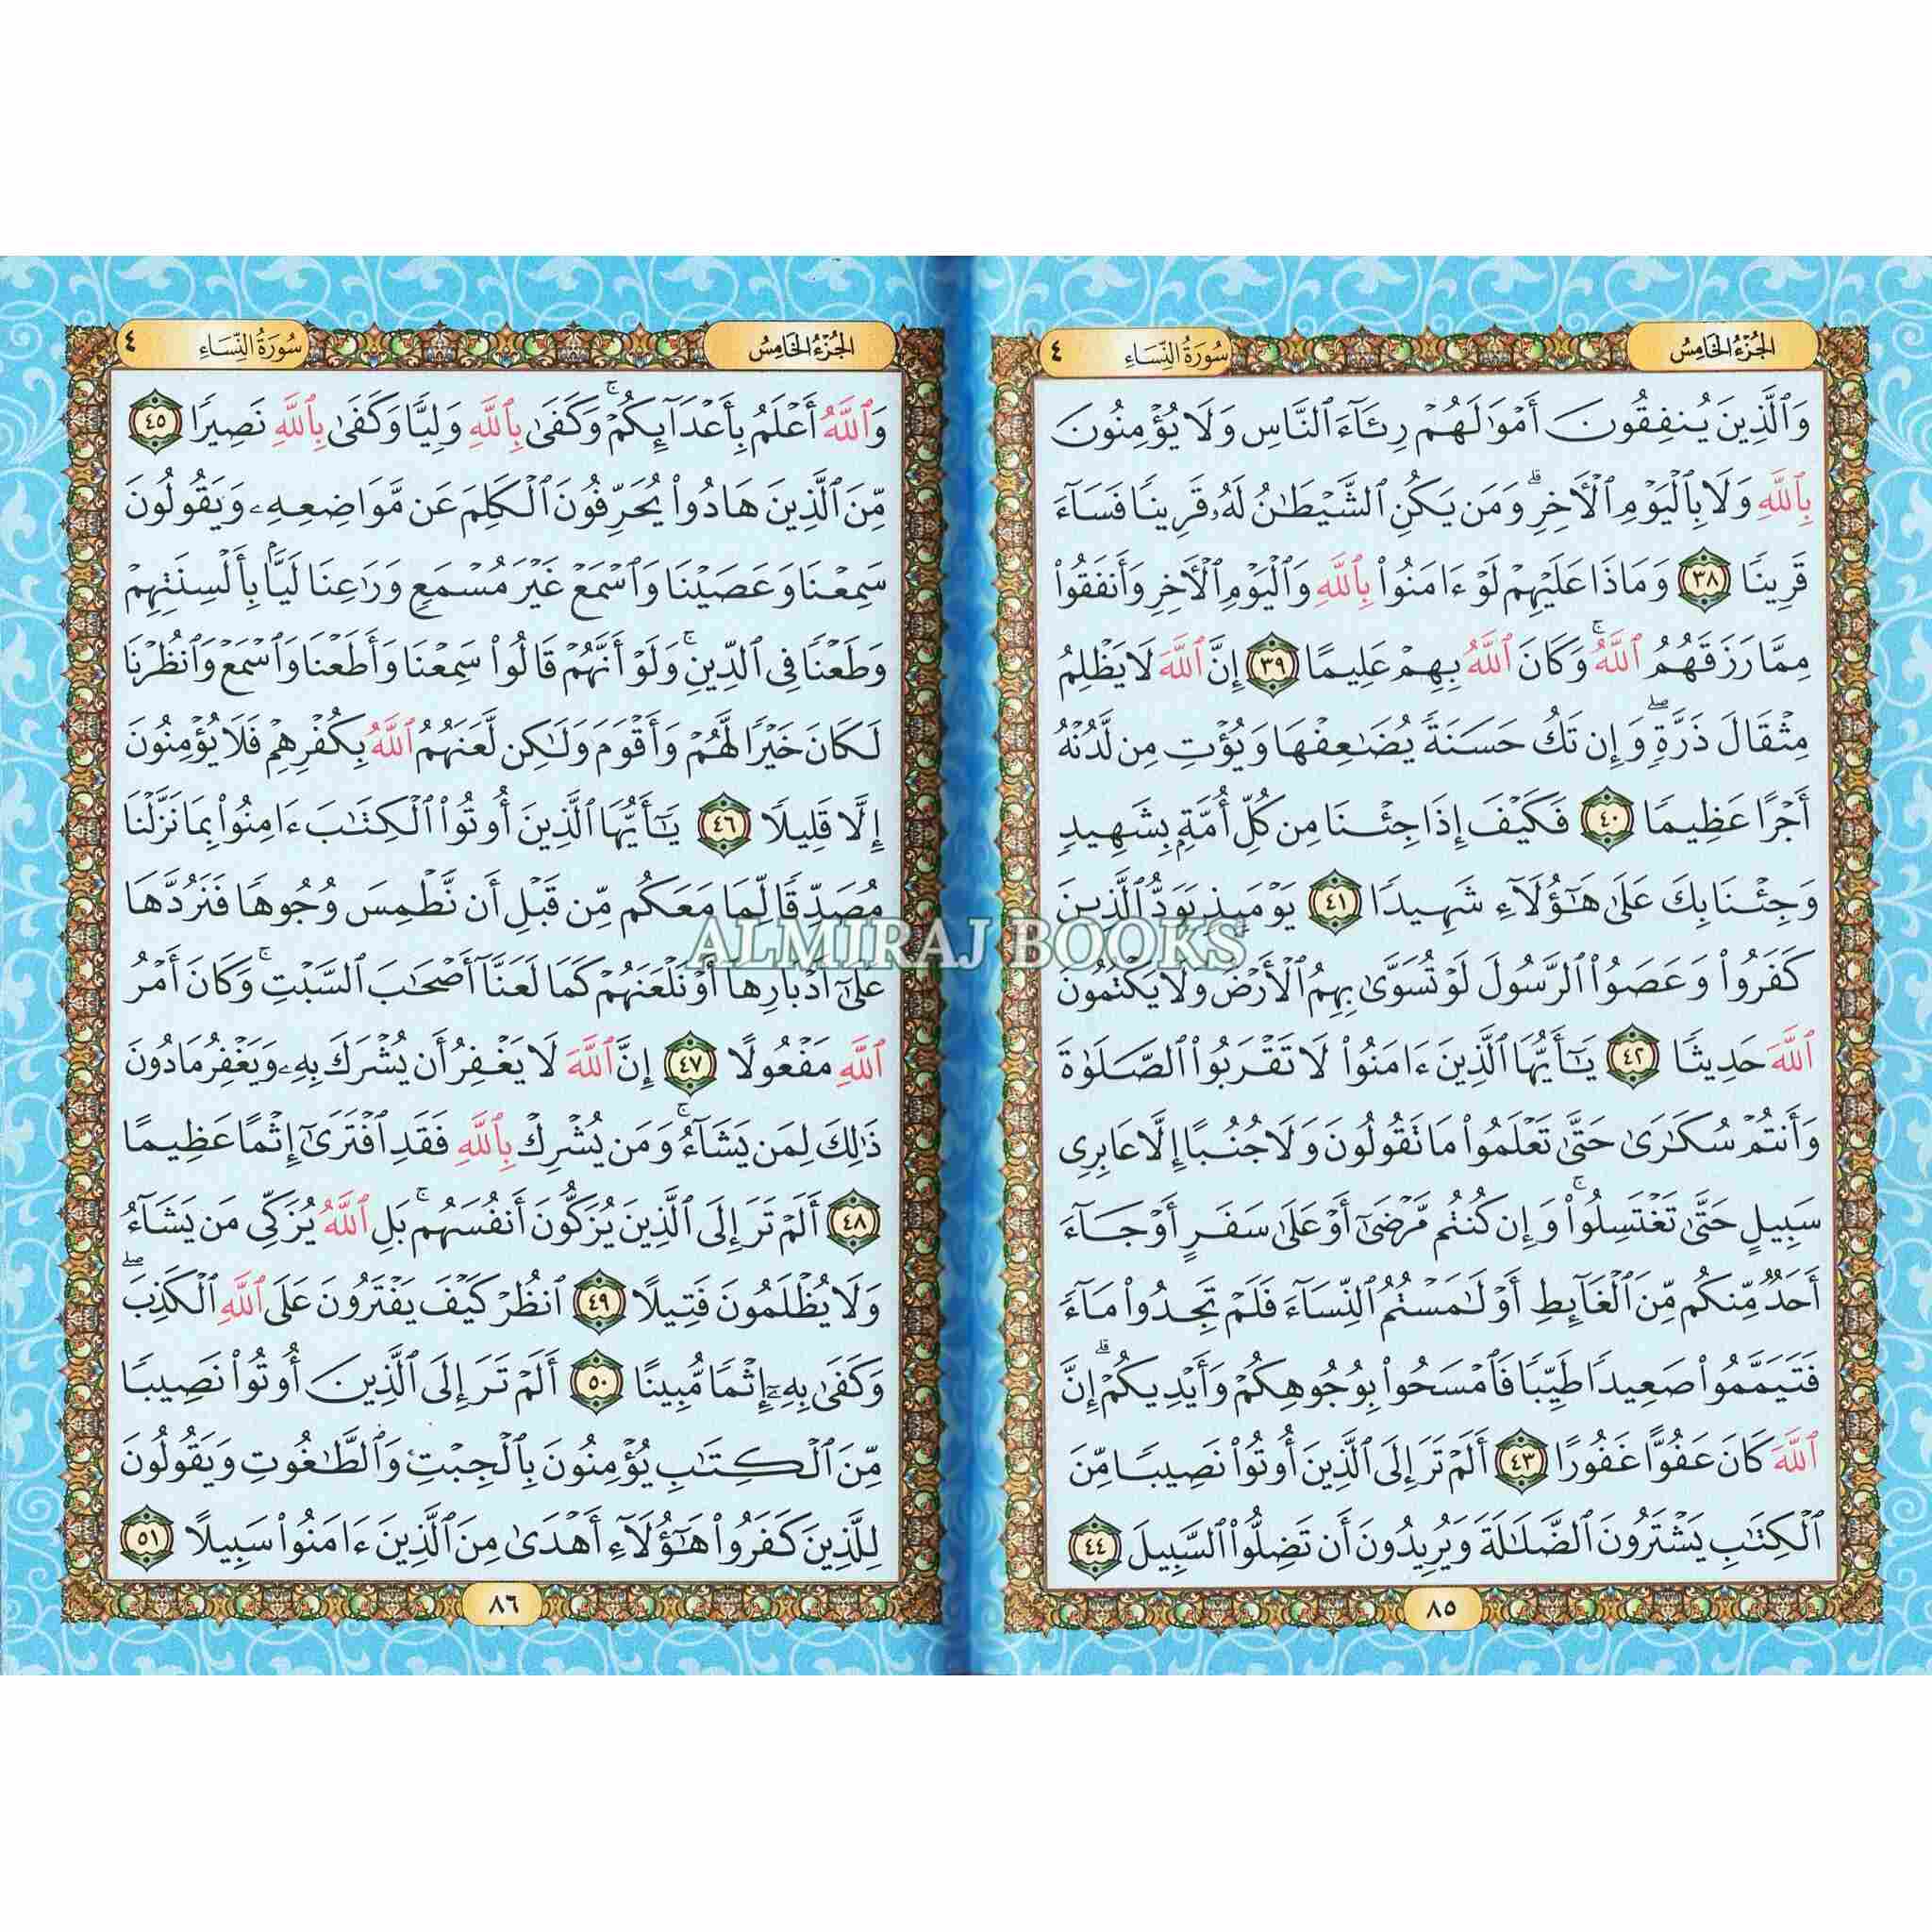 الجزء الخامس
سورة النساء ٤
وَٱلَّذِينَ يُنفِقُونَ أَمْوَٰلَهُمْ رِئَآءَ ٱلنَّاسِ وَلَا يُؤْمِنُونَ
بِٱللَّهِ وَلَا بِٱلْيَوْمِ ٱلْأَخِرِ ۗ وَمَن يَكُنِ ٱلشَّيْطَٰنُ لَهُۥ قَرِينًا فَسَآءَ
قَرِينًا ٣٨ وَمَاذَا عَلَيْهِمْ لَوْ ءَامَنُوا۟ بِٱللَّهِ وَٱلْيَوْمِ ٱلْأَخِرِ وَأَنفَقُوا۟
مِمَّا رَزَقَهُمُ ٱللَّهُ ۚ وَكَانَ ٱللَّهُ بِهِمْ عَلِيمًا ٣٩ إِنَّ ٱللَّهَ لَا يَظْلِمُ
مِثْقَالَ ذَرَّةٍ ۖ وَإِن تَكُ حَسَنَةً يُضَٰعِفْهَا وَيُؤْتِ مِن لَّدُنْهُ
أَجْرًا عَظِيمًا ٤٠ فَكَيْفَ إِذَا جِئْنَا مِن كُلِّ أُمَّةٍۭ بِشَهِيدٍ
وَجِئْنَا بِكَ عَلَىٰ هَٰٓؤُلَآءِ شَهِيدًا ٤١ يَوْمَئِذٍ يَوَدُّ ٱلَّذِينَ
كَفَرُوا۟ وَعَصَوُا۟ ٱلرَّسُولَ لَوْ تُسَوَّىٰ بِهِمُ ٱلْأَرْضُ وَلَا يَكْتُمُونَ
ٱللَّهَ حَدِيثًا ٤٢ يَٰٓأَيُّهَا ٱلَّذِينَ ءَامَنُوا۟ لَا تَقْرَبُوا۟ ٱلصَّلَوٰةَ
وَأَنتُمْ سُكَٰرَىٰ حَتَّىٰ تَعْلَمُوا۟ مَا تَقُولُونَ وَلَا جُنُبًا إِلَّا عَابِرِى
سَبِيلٍ حَتَّىٰ تَغْتَسِلُوا۟ ۚ وَإِن كُنتُم مَّرْضَىٰٓ أَوْ عَلَىٰ سَفَرٍ أَوْ جَآءَ
أَحَدٌ مِّنكُم مِّنَ ٱلْغَآئِطِ أَوْ لَٰمَسْتُمُ ٱلنِّسَآءَ فَلَمْ تَجِدُوا۟ مَآءً
فَتَيَمَّمُوا۟ صَعِيدًا طَيِّبًا فَٱمْسَحُوا۟ بِوُجُوهِكُمْ وَأَيْدِيكُمْ ۗ إِنَّ
ٱللَّهَ كَانَ عَفُوًّا غَفُورًا ٤٣ أَلَمْ تَرَ إِلَى ٱلَّذِينَ أُوتُوا۟ نَصِيبًا مِّنَ
ٱلْكِتَٰبِ يَشْتَرُونَ ٱلضَّلَٰلَةَ وَيُرِيدُونَ أَن تَضِلُّوا۟ ٱلسَّبِيلَ ٤٤
٨٥
الجزء الخامس
سورة النساء ٤
وَٱللَّهُ أَعْلَمُ بِأَعْدَآئِكُمْ ۚ وَكَفَىٰ بِٱللَّهِ وَلِيًّا وَكَفَىٰ بِٱللَّهِ نَصِيرًا ٤٥
مِّنَ ٱلَّذِينَ هَادُوا۟ يُحَرِّفُونَ ٱلْكَلِمَ عَن مَّوَاضِعِهِۦ وَيَقُولُونَ
سَمِعْنَا وَعَصَيْنَا وَٱسْمَعْ غَيْرَ مُسْمَعٍ وَرَٰعِنَا لَيًّۢا بِأَلْسِنَتِهِمْ
وَطَعْنًا فِى ٱلدِّينِ ۚ وَلَوْ أَنَّهُمْ قَالُوا۟ سَمِعْنَا وَأَطَعْنَا وَٱسْمَعْ وَٱنظُرْنَا
لَكَانَ خَيْرًا لَّهُمْ وَأَقْوَمَ وَلَٰكِن لَّعَنَهُمُ ٱللَّهُ بِكُفْرِهِمْ فَلَا يُؤْمِنُونَ
إِلَّا قَلِيلًا ٤٦ يَٰٓأَيُّهَا ٱلَّذِينَ أُوتُوا۟ ٱلْكِتَٰبَ ءَامِنُوا۟ بِمَا نَزَّلْنَا
مُصَدِّقًا لِّمَا مَعَكُم مِّن قَبْلِ أَن نَّطْمِسَ وُجُوهًا فَنَرُدَّهَا
عَلَىٰٓ أَدْبَارِهَآ أَوْ نَلْعَنَهُمْ كَمَا لَعَنَّآ أَصْحَٰبَ ٱلسَّبْتِ ۚ وَكَانَ أَمْرُ
ٱللَّهِ مَفْعُولًا ٤٧ إِنَّ ٱللَّهَ لَا يَغْفِرُ أَن يُشْرَكَ بِهِۦ وَيَغْفِرُ مَا دُونَ
ذَٰلِكَ لِمَن يَشَآءُ ۚ وَمَن يُشْرِكْ بِٱللَّهِ فَقَدِ ٱفْتَرَىٰٓ إِثْمًا عَظِيمًا
٤٨ أَلَمْ تَرَ إِلَى ٱلَّذِينَ يُزَكُّونَ أَنفُسَهُم ۚ بَلِ ٱللَّهُ يُزَكِّى مَن يَشَآءُ
وَلَا يُظْلَمُونَ فَتِيلًا ٤٩ ٱنظُرْ كَيْفَ يَفْتَرُونَ عَلَى ٱللَّهِ ٱلْكَذِبَ ۖ
وَكَفَىٰ بِهِۦٓ إِثْمًا مُّبِينًا ٥٠ أَلَمْ تَرَ إِلَى ٱلَّذِينَ أُوتُوا۟ نَصِيبًا
مِّنَ ٱلْكِتَٰبِ يُؤْمِنُونَ بِٱلْجِبْتِ وَٱلطَّٰغُوتِ وَيَقُولُونَ
لِلَّذِينَ كَفَرُوا۟ هَٰٓؤُلَآءِ أَهْدَىٰ مِنَ ٱلَّذِينَ ءَامَنُوا۟ سَبِيلًا ٥١
٨٦
ALMIRAJ BOOKS